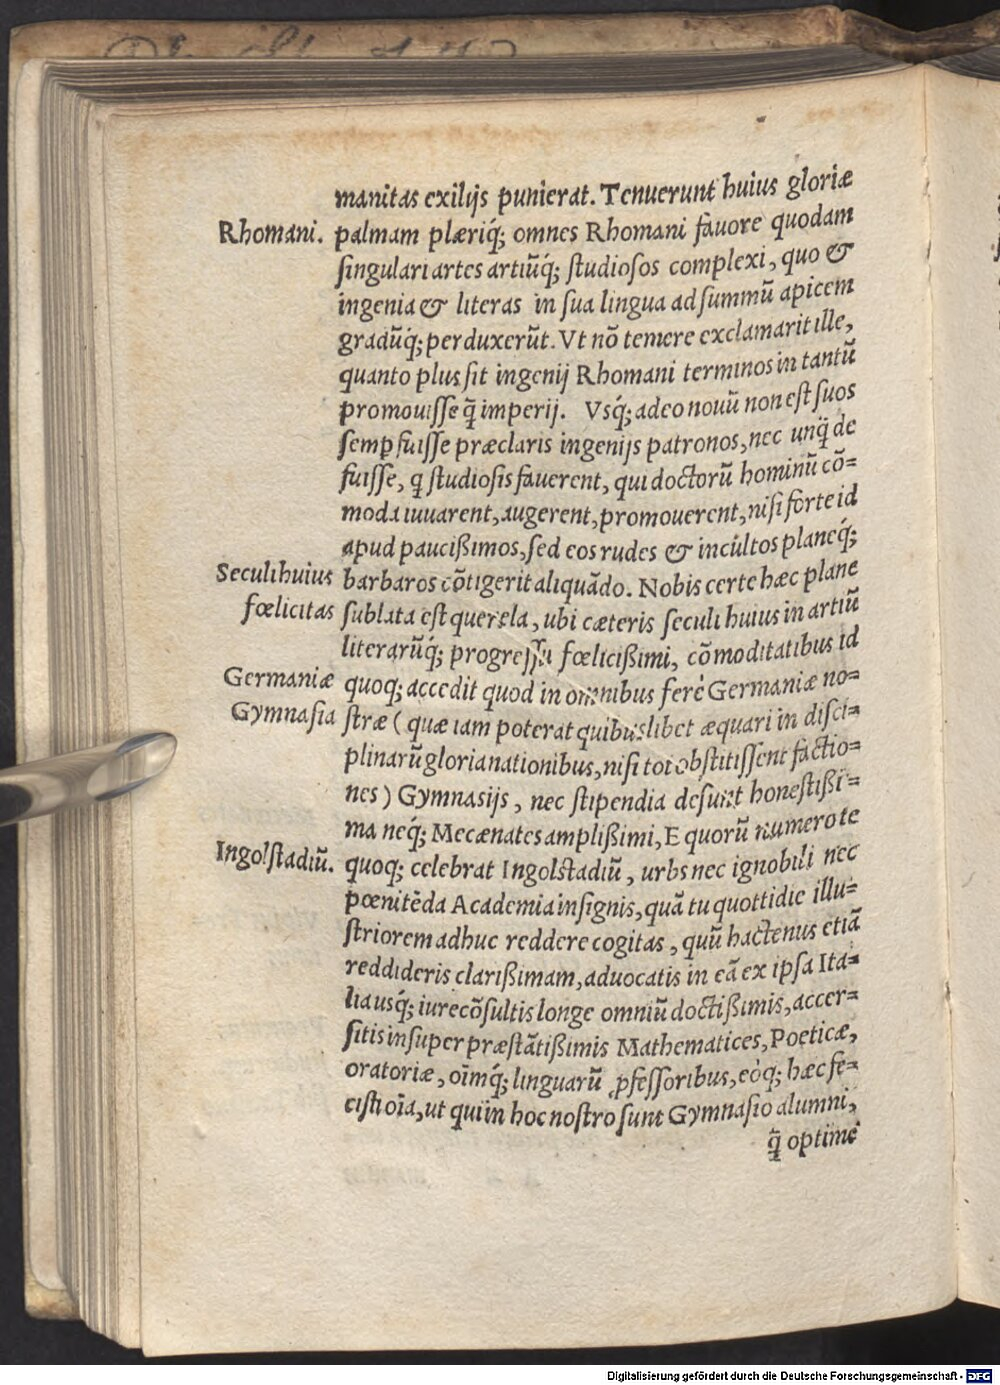 manitas exilijs punierat. Tenuerunt huius gloriæ
Rhomani. palmam plæriq́; omnes Rhomani fauore quodam
singulari artes artiũq́; studiosos complexi, quo &
ingenia & literas in sua lingua ad summũ apicem
gradũq́; perduxerũt. Vt nõ temere exclamarit ille,
quanto plus sit ingenij Rhomani terminos in tantũ
promouisse q̃ imperij. Vsq́; adeo nouũ non est suos
semp fuisse præclaris ingenijs patronos, nec unq̃ de
fuisse, q studiosis fauerent, qui doctorũ hominũ cõ=
moda iuuarent, augerent, promouerent, nisi forte id
apud paucißimos, sed eos rudes & incultos planeq́;
Seculi huius barbaros cõtigerit aliquãdo. Nobis certe hæc plane
fœlicitas sublata est querela, ubi cæteris seculi huius in artiũ
literarũq́; progressu fœlicißimi, cõmoditatibus id
Germaniæ quoq; accedit quod in omnibus ferè Germaniæ no=
Gymnasia stræ (quæ iam poterat quibuslibet æquari in disci=
plinarũ gloria nationibus, nisi tot obstitissent factio=
nes) Gymnasijs, nec stipendia desunt honestißi=
ma neq́; Mecænates amplißimi, E quorũ numero te
Ingolstadiũ. quoq; celebrat Ingolstadiũ, urbs nec ignobili nec
pœnitẽda Academia insignis, quã tu quottidie illu=
striorem adhuc reddere cogitas, quũ hactenus etiã
reddideris clarißimam, aduocatis in eã ex ipsa Ita=
lia usq́; iurecõsultis longe omniũ doctißimis, accer=
sitis insuper præstãtißimis Mathematices, Poeticæ,
oratoriæ, oĩmq́; linguarũ ꝓfessoribus, eòq; hæc fe=
cisti oĩa, ut qui in hoc nostro sunt Gymnasio alumni,
q̃ optime
Digitalisierung gefördert durch die Deutsche Forschungsgemeinschaft - DFG